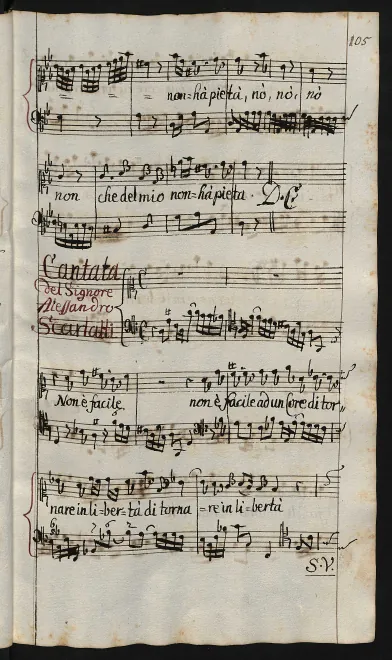 105
non=hà pietà, nò, nò, nò
non che del mio non=hà pieta. D.C.
Cantata
del Signore
Alessandro
Scarlatti
Non è facile non è facile ad un Core di tor=
nare in li=ber=tà di torna =re in li=bertà
S.V.